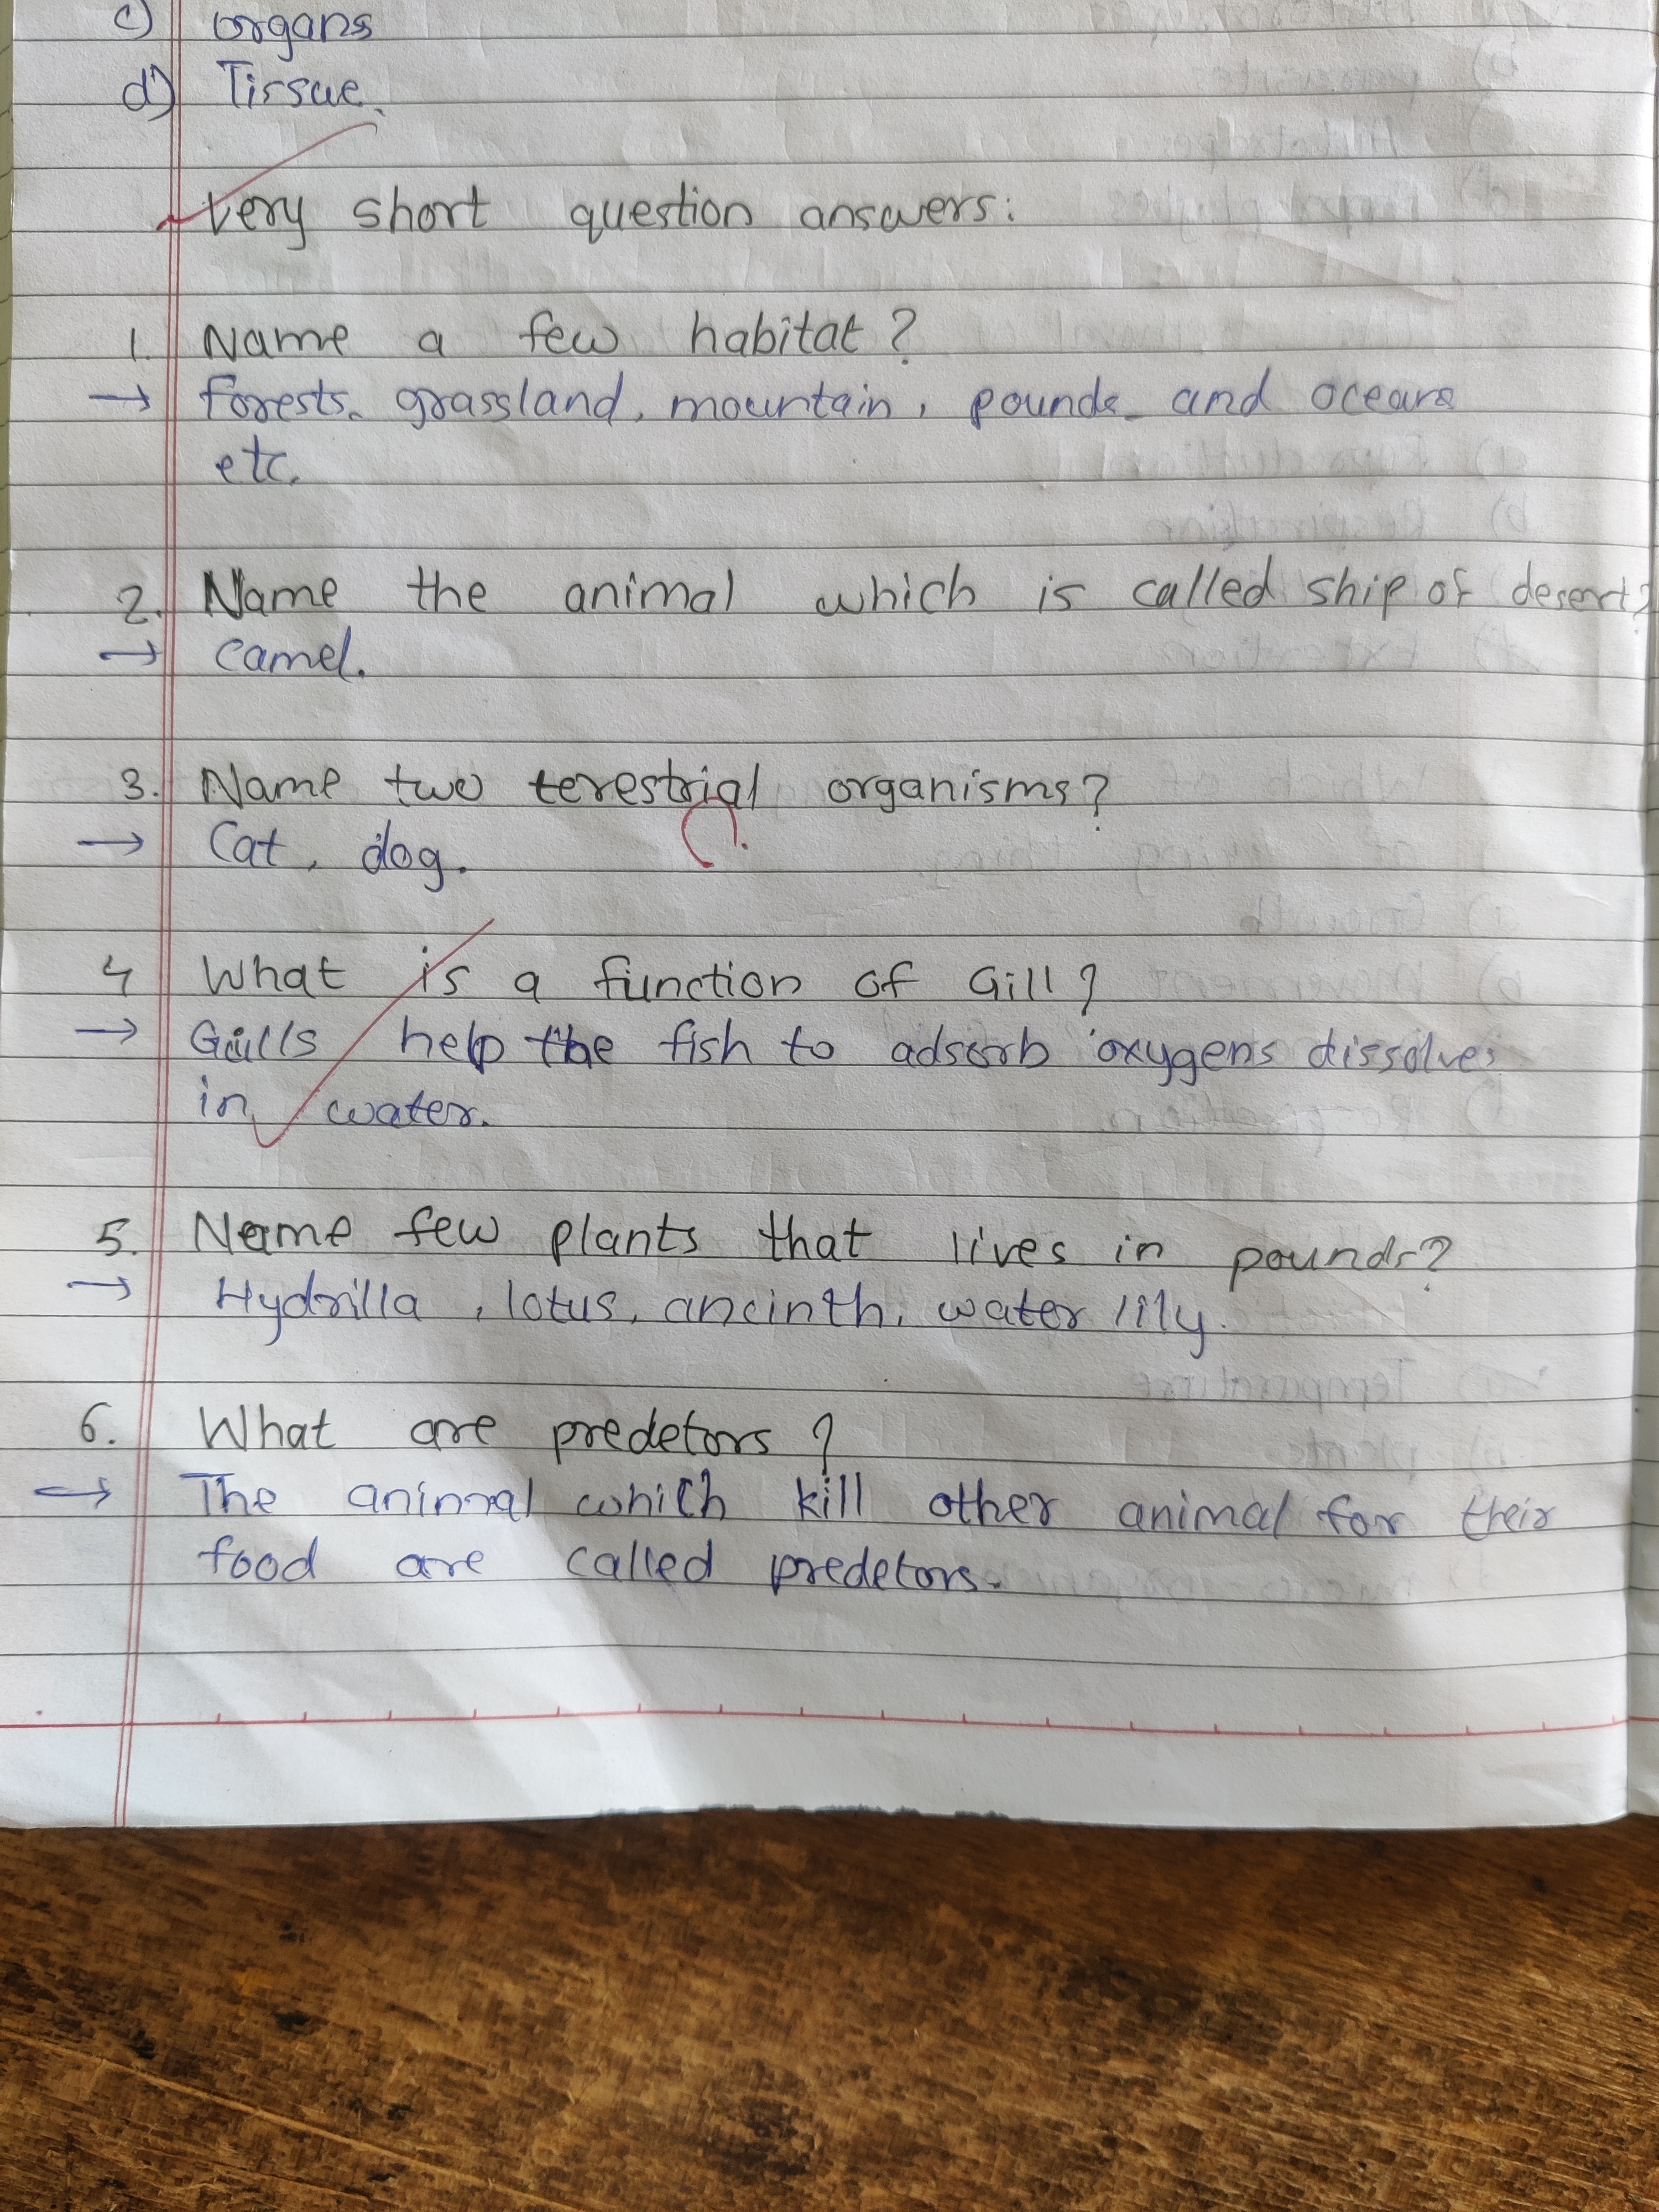 c) organs
d) Tissue.
Very short question answers:
1. Name a few habitat?
→ forests, grassland, mountain, pounds and oceans
etc.
2. Name the animal which is called ship of desert?
→ camel.
3. Name two terestrial organisms?
→ Cat, dog.
4 What is a function of Gill?
→ Gills help the fish to adsorb oxygens dissolves
in water.
5. Name few plants that lives in pounds?
→ Hydrilla, lotus, ancinth, water lily.
6. What are predetors?
→ The animal which kill other animal for their
food are called predetors.